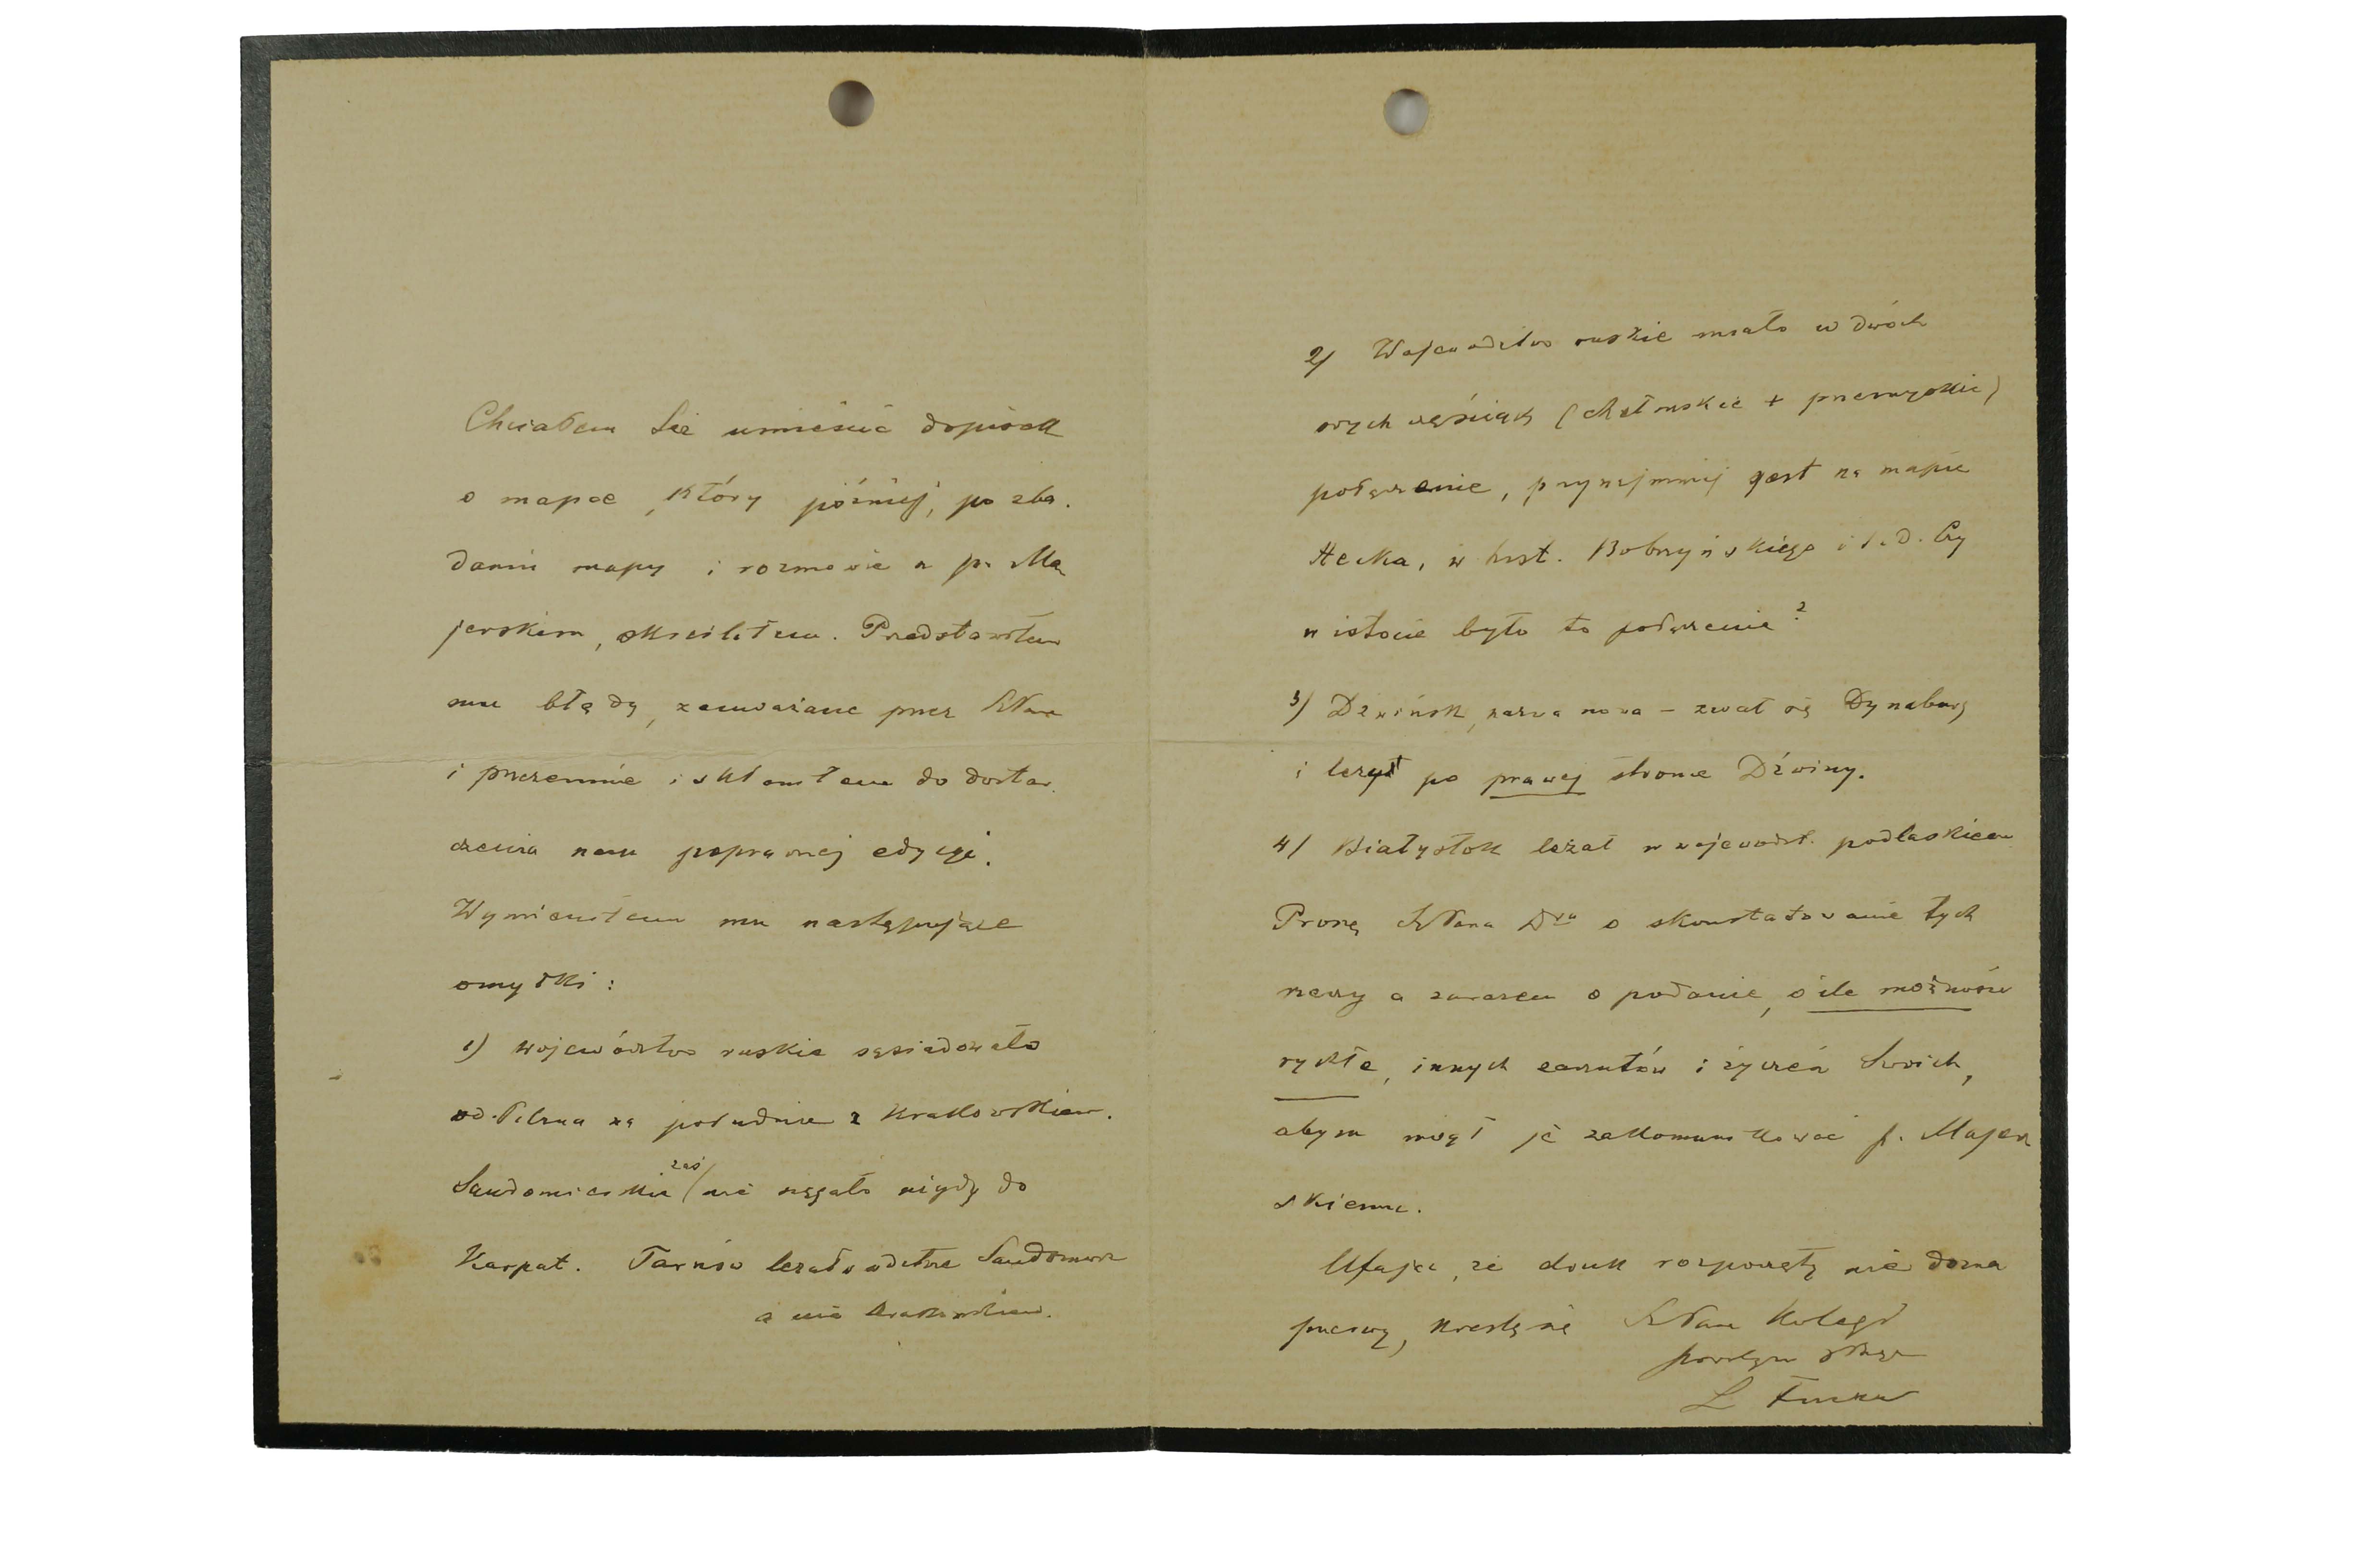 Chciałem tu umieścić dopisek
o mapce, który później, po zba-
daniu mapy i rozmowie z p. Ma-
jerskim, skreśliłem. Przedstawiłem
mu błędy, zauważane przez WPana
i przezemnie i skłoniłem do dostar-
czenia nam poprawnej edycyi.
Wymieniłem mu następujące
omyłki:
1) województwo ruskie sąsiadowało
od Pilzna na południe z Krakowskiem.
Sandomierskie zaś nie sięgało nigdy do
Karpat. Tarnów leżał w wdztwie Sandomier.
a nie Krakowskiem.
2) Województwo ruskie miało w dwóch
swych częściach (chełmskie + przemyskie)
połączenie, przynajmniej jest na mapie
Hecka, w hist. Bobrzyńskiego i t. d. Czy
w istocie było to połączenie?
3) Dźwińsk, nazwa nowa – zwał się Dynaburg
i leżał po prawej stronie Dźwiny.
4/ Białystok leżał w wojewodzt. podlaskiem
Proszę WPana Dra o skonstatowanie tych
rzeczy a zarazem o podanie, o ile możności
rychłe, innych zarzutów i życzeń Swoich,
abym mógł je zakomunikować p. Majer-
skiemu.
Ufając, że druk rozpoczęty nie dozna
przerwy, kreślę się WPana Kolegi
powolnym sługą
L